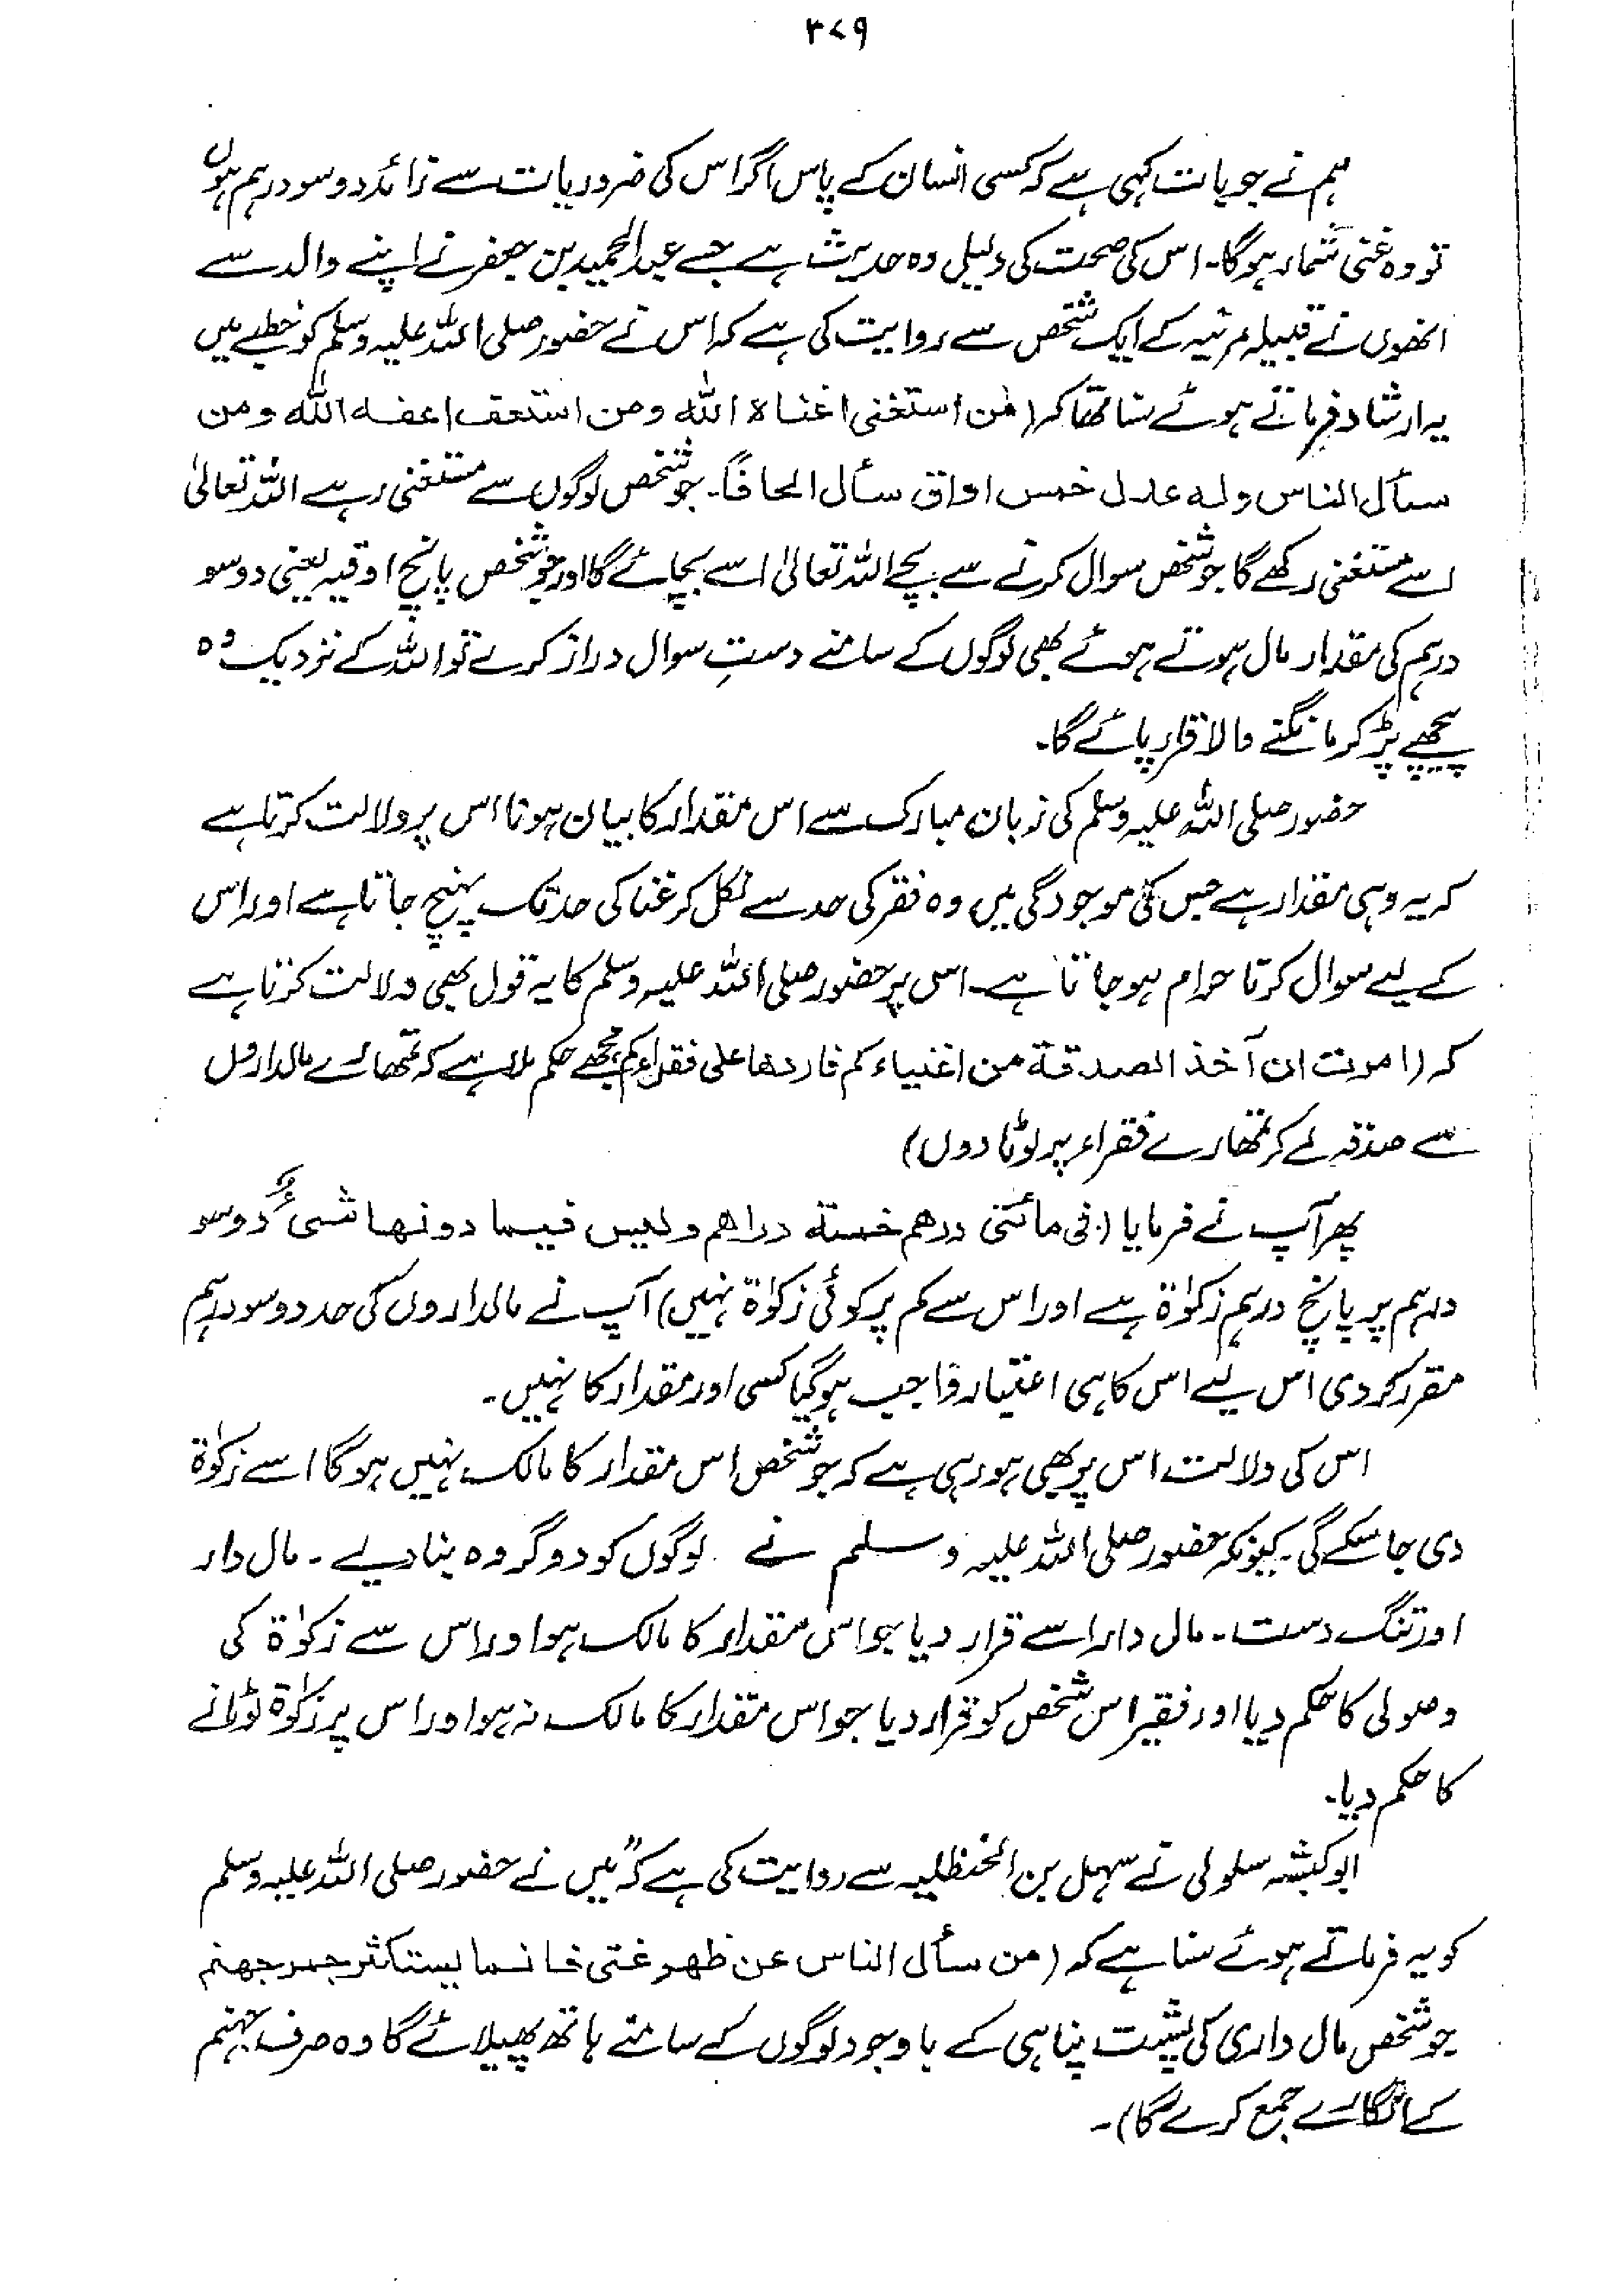 ۳۷۹
ہم نے جو بات کہی ہے کہ کسی انسان کے پاس اگر اس کی ضروریات سے زائد دو سو درہم ہوں
تو وہ غنی شمار ہوگا۔ اس کی صحت کی دلیل وہ حدیث ہے جسے عبدالحمید بن جعفر نے اپنے والد سے
انھوں نے قبیلہ مزنیہ کے ایک شخص سے روایت کی ہے کہ اس نے حضور صلی اللہ علیہ وسلم کو خطبے میں
یہ ارشاد فرماتے ہوئے سنا تھا کہ (من استغنی اغناہ اللہ ومن استعف اعفہ اللہ ومن
سأل الناس ولہ عدل خمس اواق سأل الحافاً۔ جو شخص لوگوں سے مستغنی رہے اللہ تعالیٰ
اسے مستغنی رکھے گا جو شخص سوال کرنے سے بچے اللہ تعالیٰ اسے بچائے گا اور جو شخص پانچ اوقیہ یعنی دو سو
درہم کی مقدار مال ہوتے ہوئے بھی لوگوں کے سامنے دستِ سوال دراز کرے تو اللہ کے نزدیک وہ
پیچھے پڑ کر مانگنے والا قرار پائے گا۔
حضور صلی اللہ علیہ وسلم کی زبان مبارک سے اس مقدار کا بیان ہونا اس پر دلالت کرتا ہے
کہ یہ وہی مقدار ہے جس کی موجودگی میں وہ فقر کی حد سے نکل کر غنا کی حد تک پہنچ جاتا ہے اور اس
کے لیے سوال کرنا حرام ہو جاتا ہے۔ اس پر حضور صلی اللہ علیہ وسلم کا یہ قول بھی دلالت کرتا ہے
کہ (امرت ان آخذ الصدقۃ من اغنیاء کم فاردھا علی فقراءکم مجھے حکم ملا ہے کہ تمھارے مالداروں
سے صدقہ لے کر تمھارے فقراء پر لوٹا دوں)
پھر آپ نے فرمایا (فی مائتی درھم خمستہ دراھم ولیس فیما دونھا شیٔ دو سو
درہم پر پانچ درہم زکوٰۃ ہے اور اس سے کم پر کوئی زکوٰۃ نہیں) آپ نے مالداروں کی حد دو سو درہم
مقرر کر دی اس لیے اس کا ہی اعتبار واجب ہو گیا کسی اور مقدار کا نہیں۔
اس کی دلالت اس پر بھی ہو رہی ہے کہ جو شخص اس مقدار کا مالک نہیں ہوگا اسے زکوٰۃ
دی جا سکے گی۔ کیونکہ حضور صلی اللہ علیہ وسلم نے لوگوں کو دو گروہ بنا دیے۔ مال دار
اور تنگ دست۔ مال دار اسے قرار دیا جو اس مقدار کا مالک ہو اور اس سے زکوٰۃ کی
وصولی کا حکم دیا اور فقیر اس شخص کو قرار دیا جو اس مقدار کا مالک نہ ہو اور اس پر زکوٰۃ لوٹانے
کا حکم دیا۔
ابو کبشہ سلولی نے سہل بن الحنظلیہ سے روایت کی ہے کہ "میں نے حضور صلی اللہ علیہ وسلم
کو یہ فرماتے ہوئے سنا ہے کہ (من سأل الناس عن ظھر غنی فانما یستکثر جمر جھنم
جو شخص مال داری کی پشت پناہی کے باوجود لوگوں کے سامنے ہاتھ پھیلائے گا وہ صرف جہنم
کے انگارے جمع کرے گا)۔